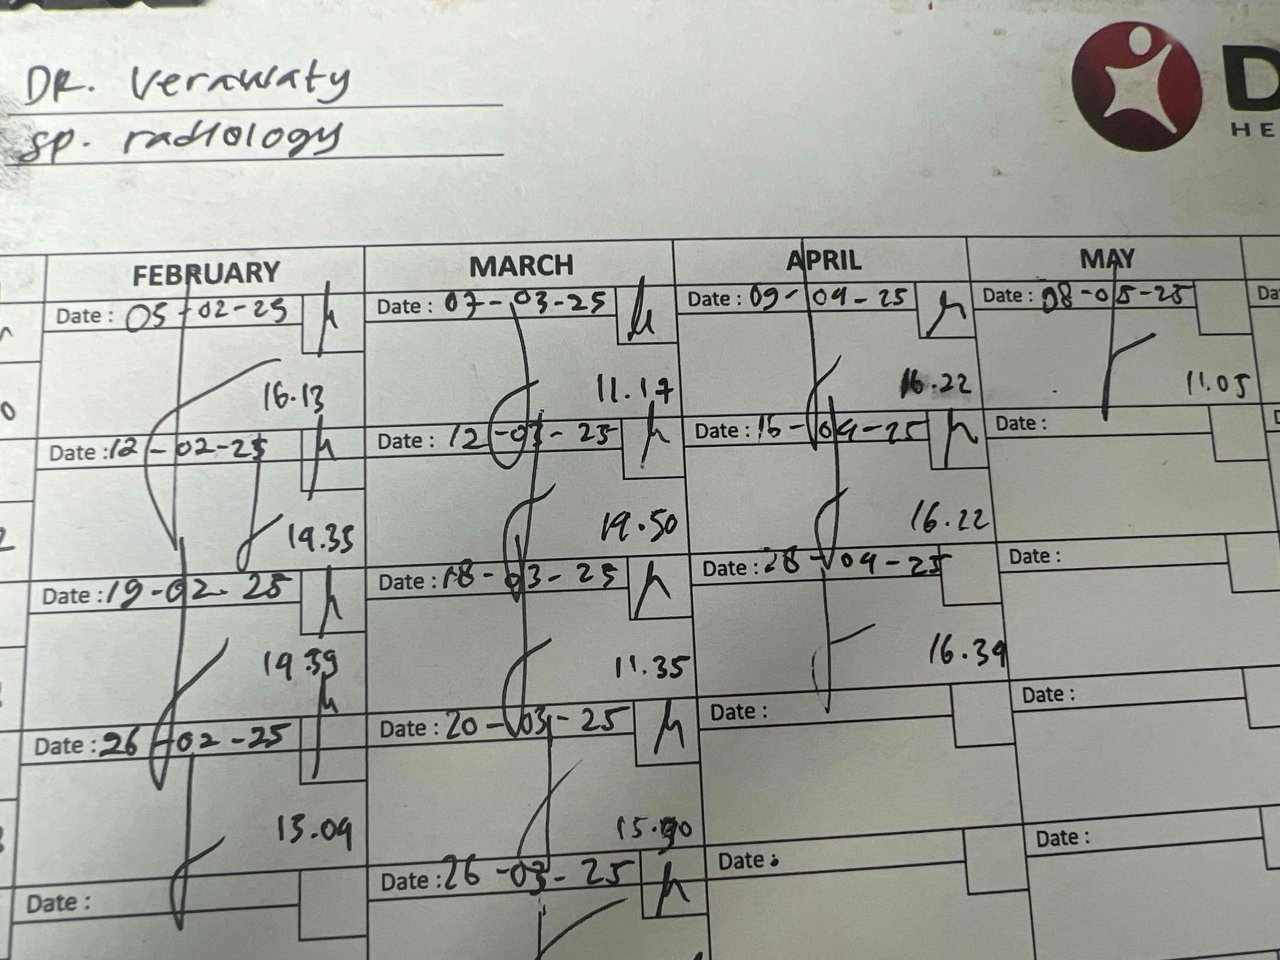 DR. Verawaty
sp. radiology
D
HE
FEBRUARY MARCH APRIL MAY
Date : 05-02-25 Date : 07-03-25 Date : 09-04-25 Date : 08-05-25 Da
16.13 11.17 16.22 11.05
Date : 12-02-25 Date : 12-03-25 Date : 15-04-25 Date :
19.35 19.50 16.22
Date : 19-02-25 Date : 18-03-25 Date : 28-04-25 Date :
19.39 11.35 16.39
Date : 26-02-25 Date : 20-03-25 Date : Date :
13.09
Date : Date : 26-03-25 Date : Date :